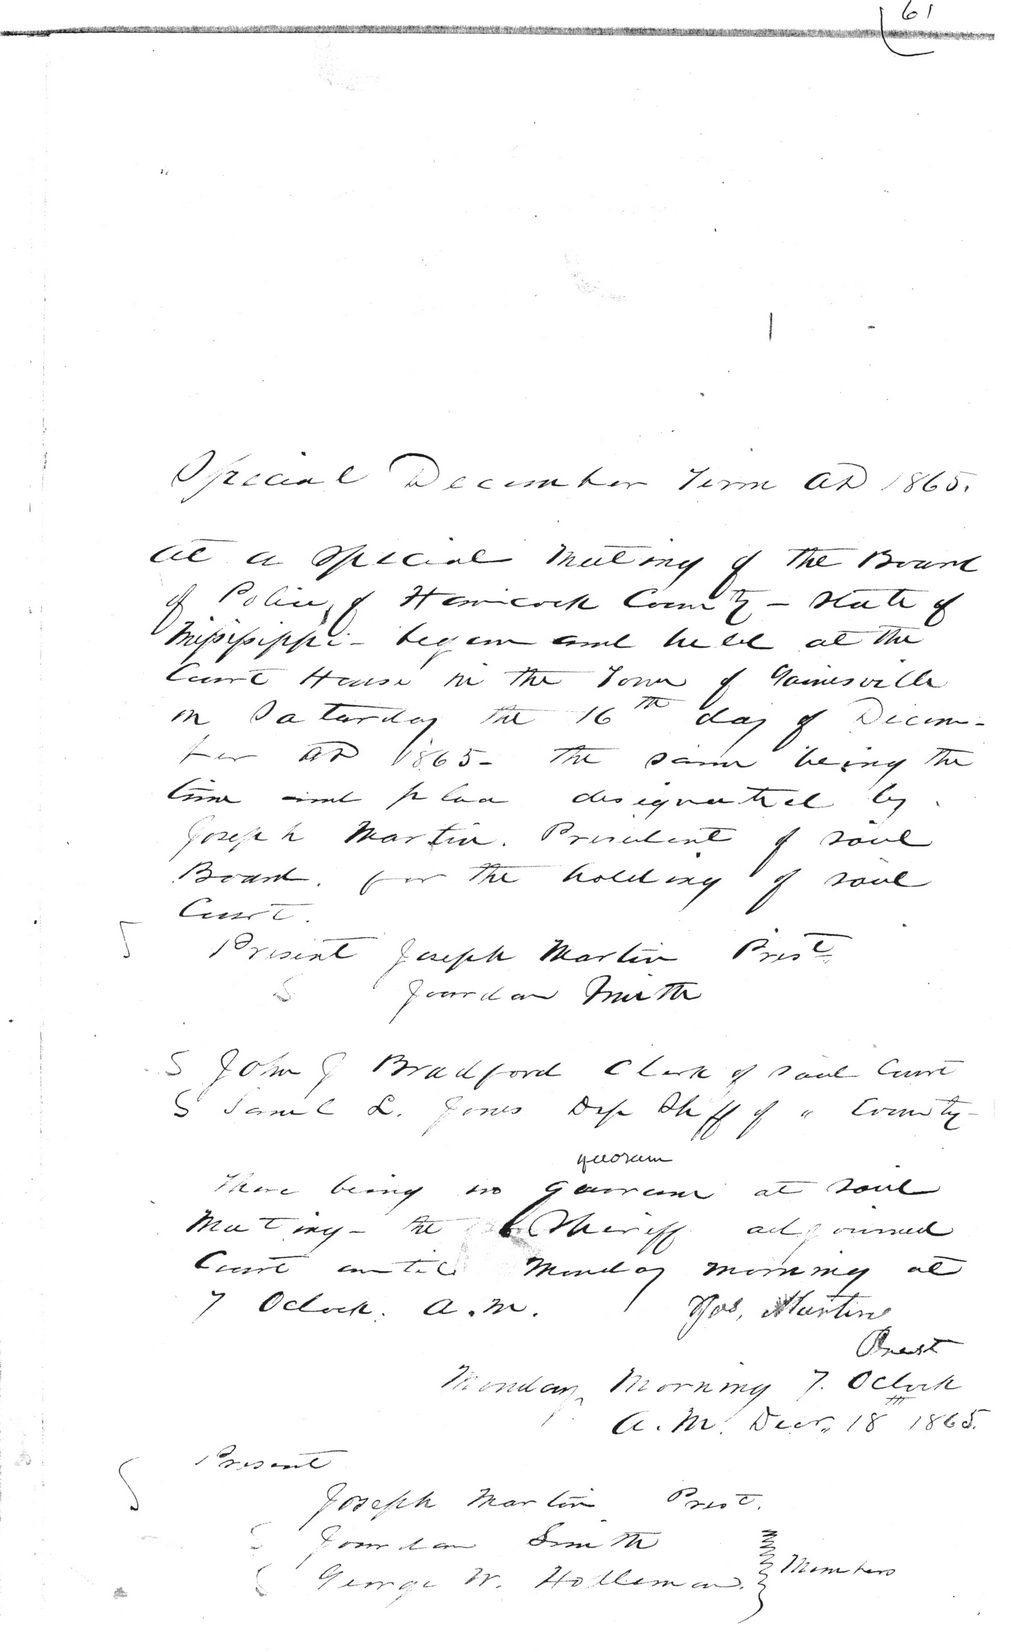 61
Special December Term AD 1865.
At a Special Meeting of the Board
of Police, of Hancock County - State of
Missippi - began and held at the
Court House in the Town of Gainesville
on Saturday the 16th day of Decem-
ber AD 1865 - the same being the
time and place designated by
Joseph Martin. President of said
Board. for the holding of said
Court.
Present Joseph Martin Prest
S Jourdan Smith
S John J Bradford Clerk of said Court
S Saml L. Jones Dep Shff of " County -
quorum
There being no quorum at said
Meeting - the Sheriff adjourned
Court until Monday morning at
7 Oclock. A.M. Jos. Martin
Prest
Monday Morning 7. Oclock
A.M. Decr. 18th 1865.
Present
Joseph Martin Prest.
S Jourdan Smith
S George W. Holleman. Members